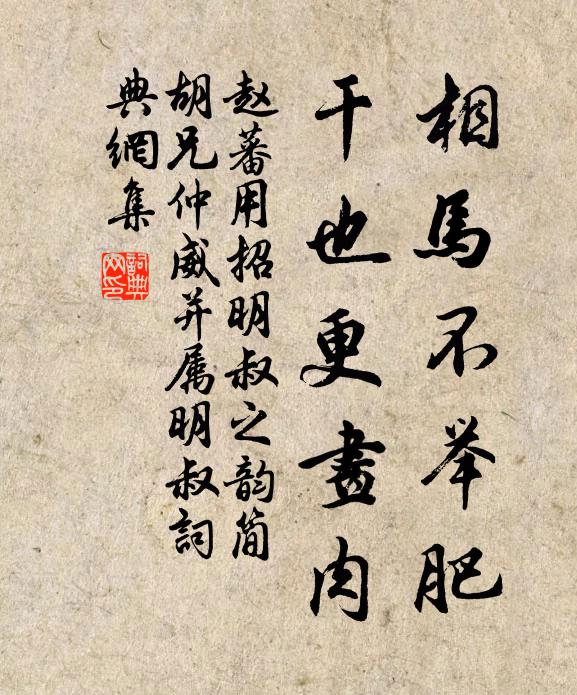 相馬不举肥
干也更畫肉
赵蕃用招明叔之韵简
胡兄仲威并属明叔詞
典網集
詞典网印